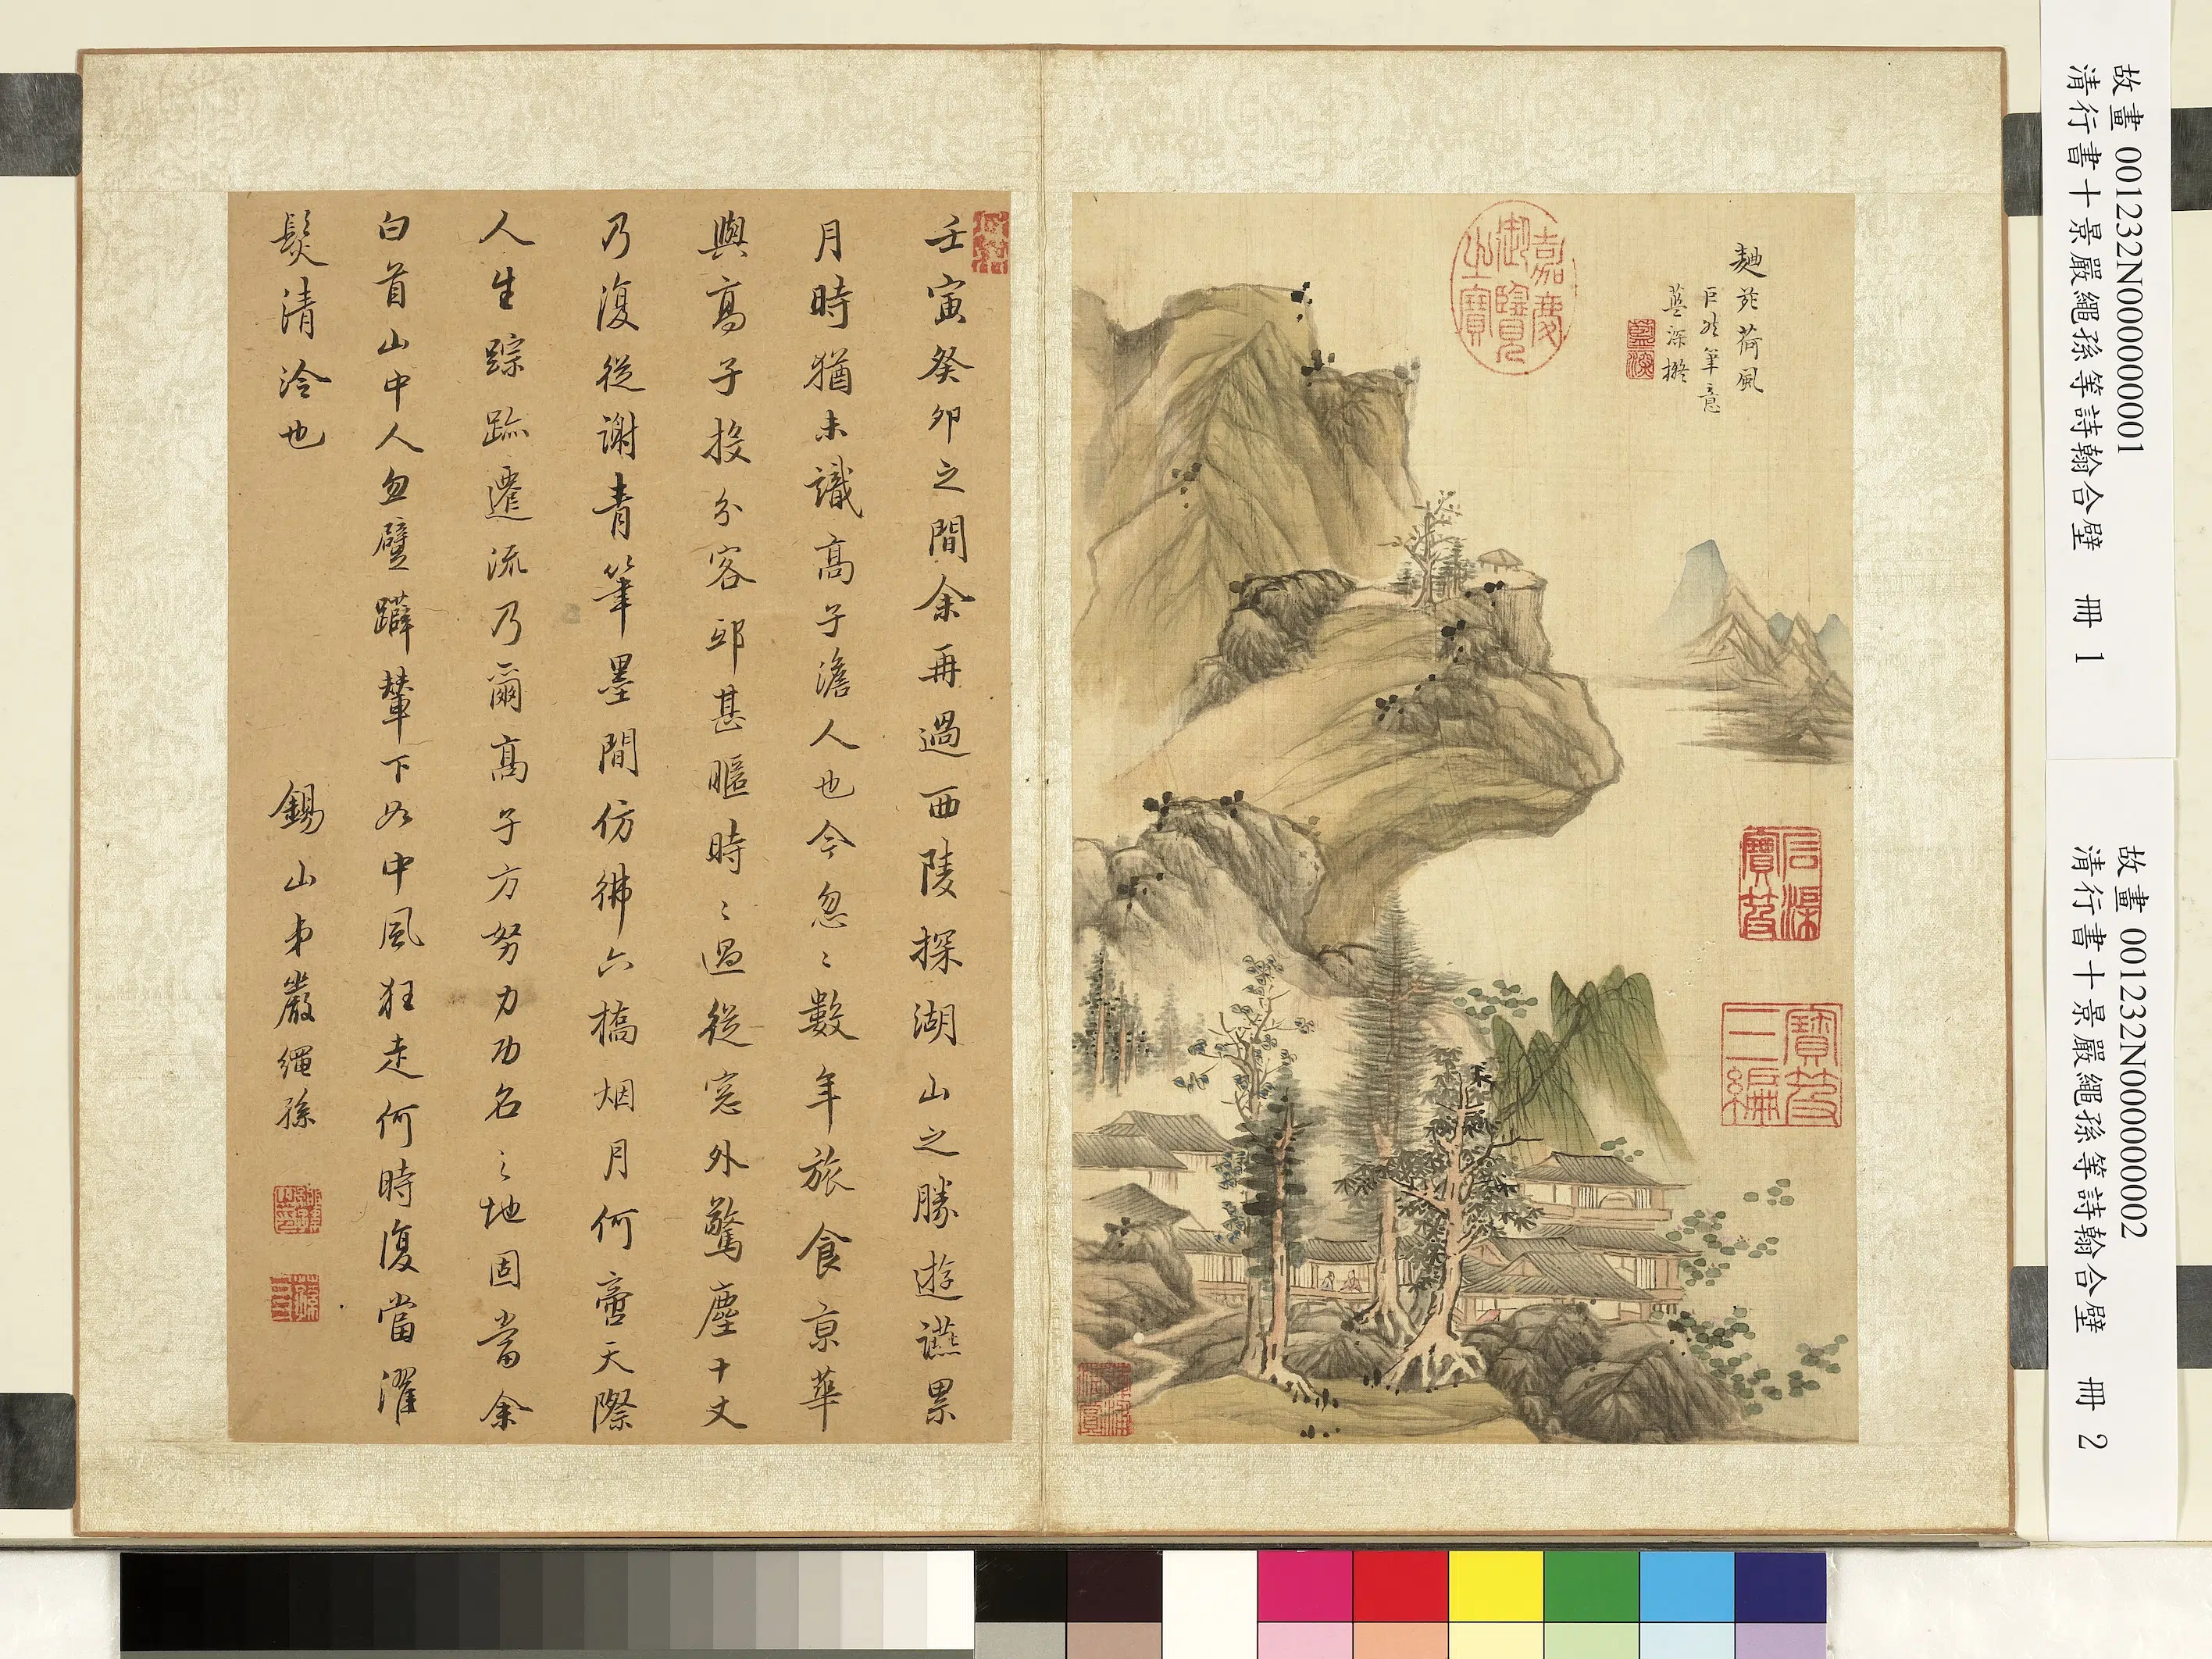 故畫 001232N000000001
清行書十景嚴繩孫等詩翰合壁 冊 1
故畫 001232N000000002
清行書十景嚴繩孫等詩翰合壁 冊 2
麯院荷風
巨然筆意
藍深擬
藍深
嘉慶
御覽
之寶
石渠
寶笈
寶笈
三編
壬寅癸卯之間余再過西陵探湖山之勝遊讌累
月時猶未識高子澹人也今忽〻數年旅食京華
與高子投分客邸甚暱時〻過從窓外驚塵十丈
乃復從謝青筆墨間仿彿六橋烟月何啻天際
人生踪跡遷流乃爾高子方努力功名之地固當余
白首山中人忽躄躃輦下如中風狂走何時復當濯
髮清泠也
錫山弟嚴繩孫